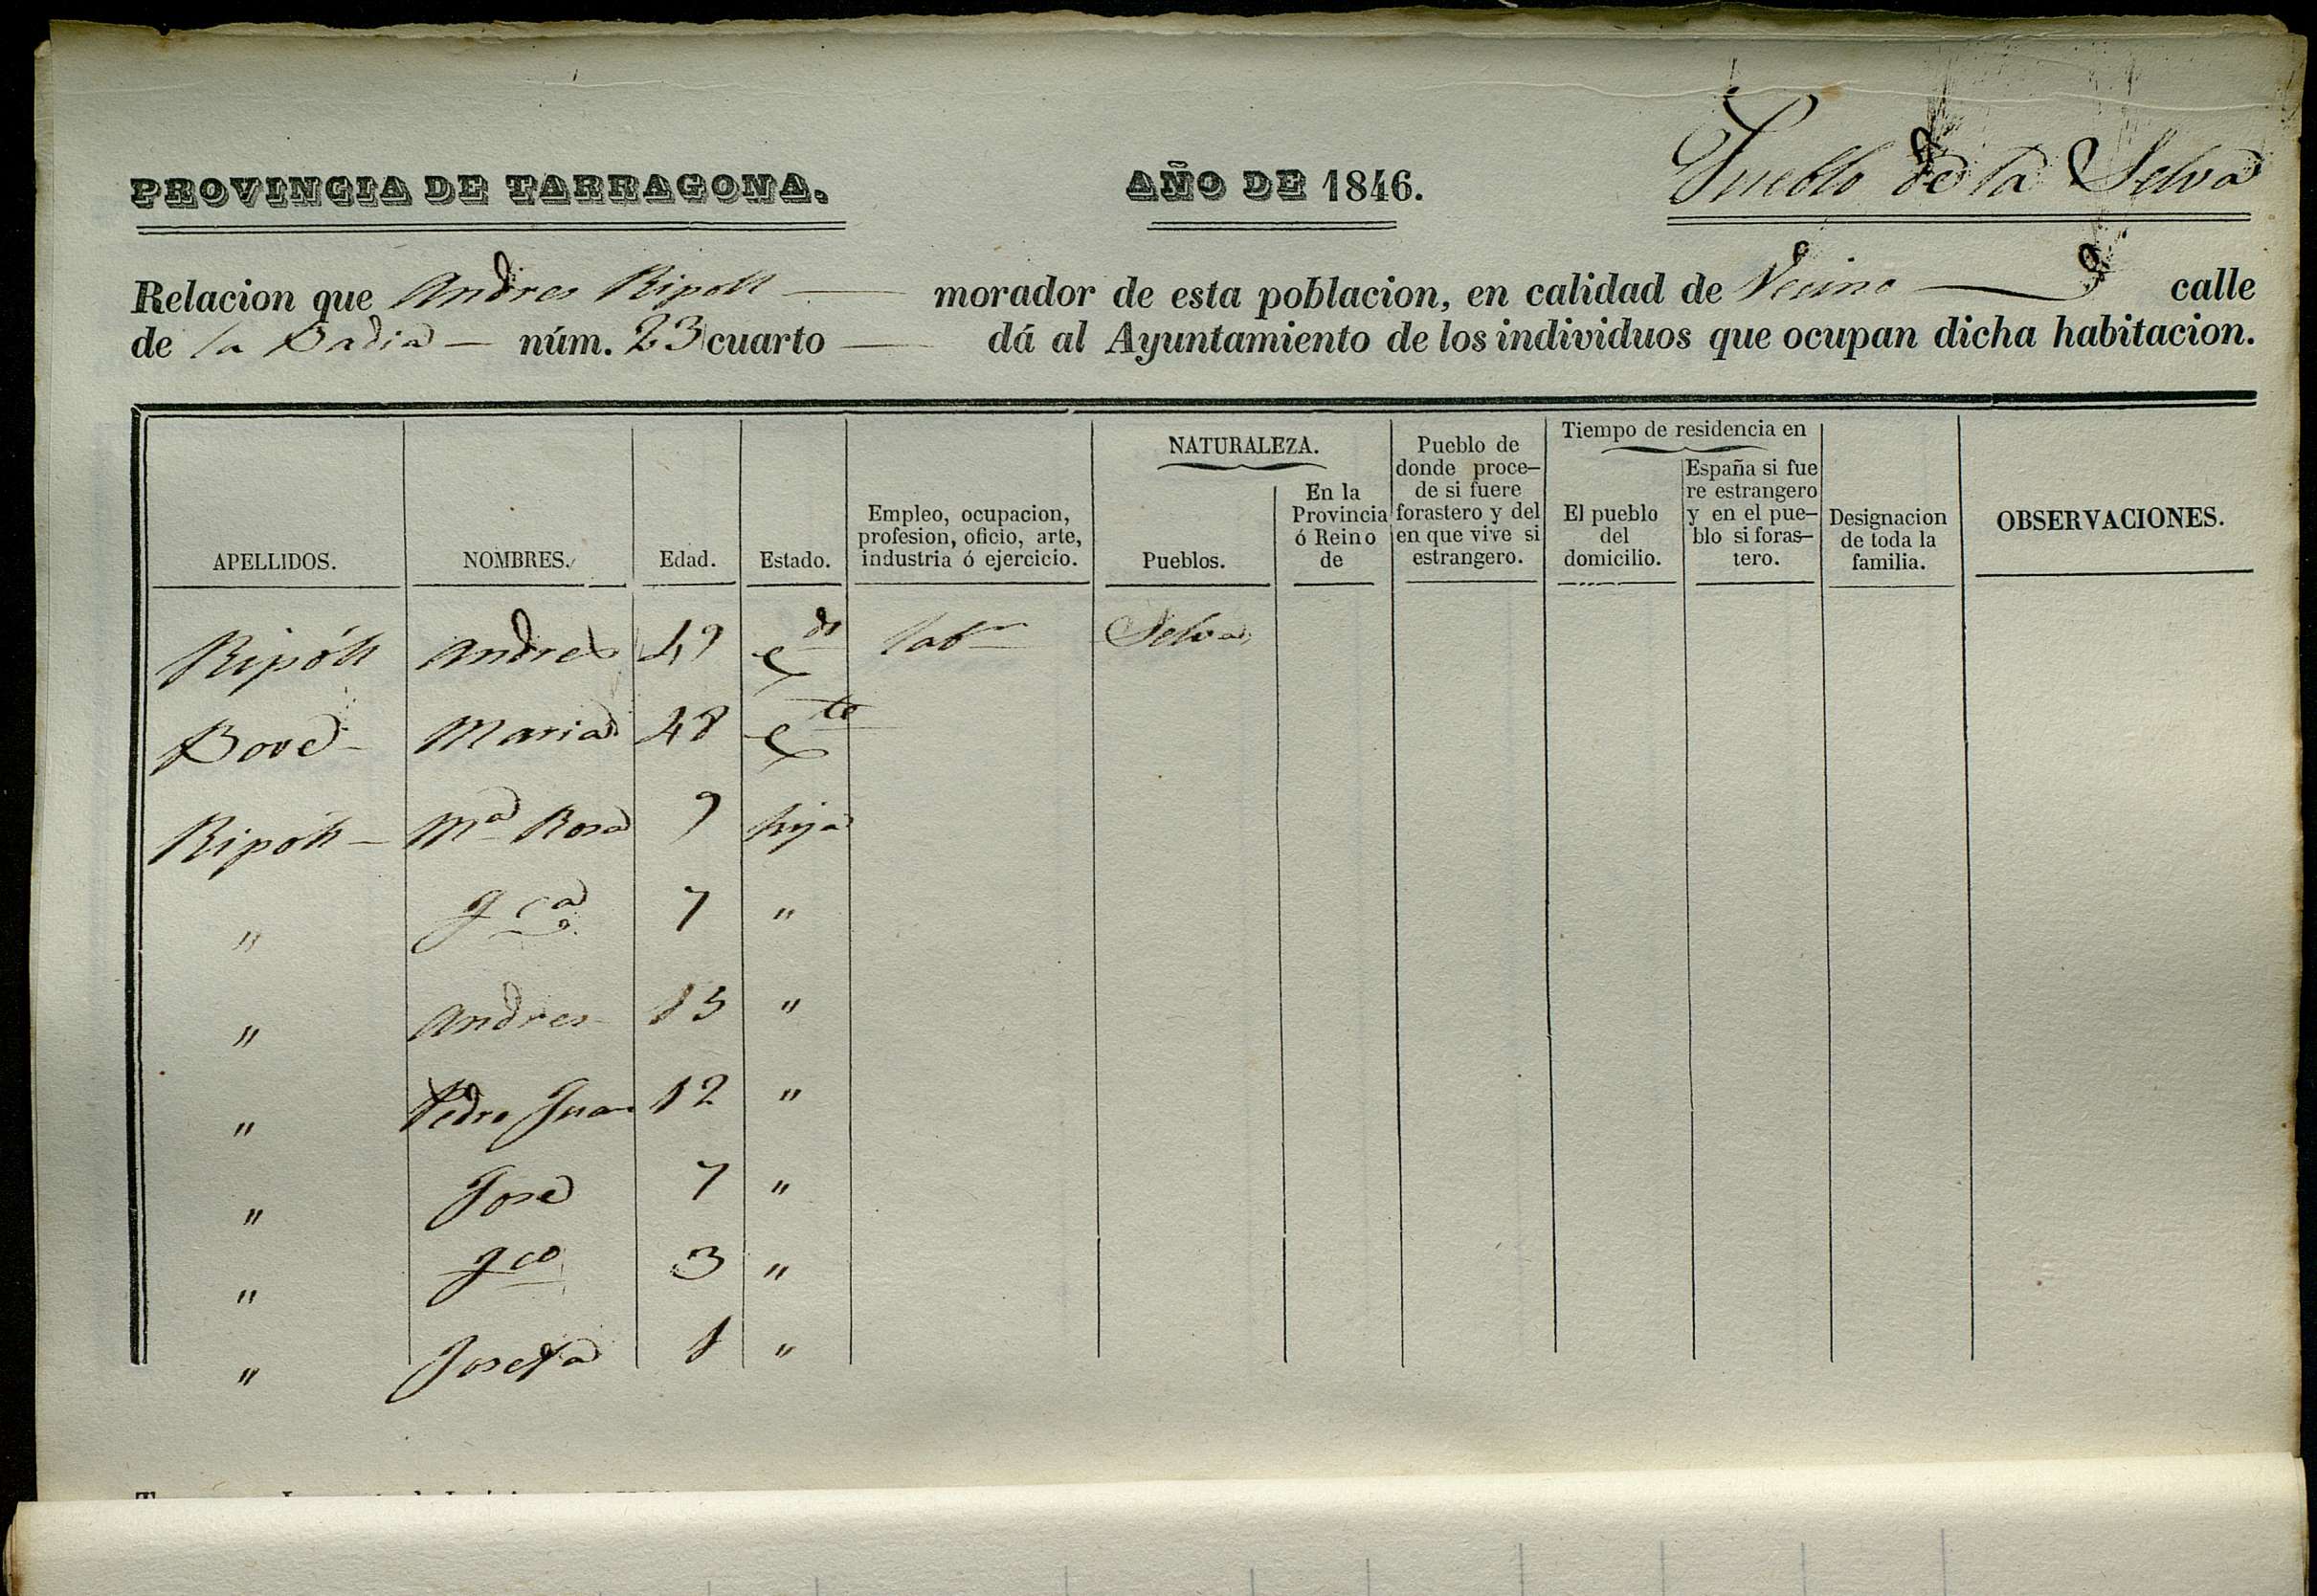 PROVINCIA DE TARRAGONA. AÑO DE 1846. Pueblo de la Selva
Relacion que Andres Ripoll morador de esta poblacion, en calidad de Vecino calle
de la Badia núm. 23 cuarto dá al Ayuntamiento de los individuos que ocupan dicha habitacion.
APELLIDOS.
NOMBRES.
Edad.
Estado.
Empleo, ocupacion,
profesion, oficio, arte,
industria ó ejercicio.
NATURALEZA.
Pueblos.
En la
Provincia
ó Reino
de
Pueblo de
donde proce-
de si fuere
forastero y del
en que vive si
estrangero.
Tiempo de residencia en
El pueblo
del
domicilio.
España si fue
re estrangero
y en el pue-
blo si foras-
tero.
Designacion
de toda la
familia.
OBSERVACIONES.
Ripóll Andres 49 Cdo labr Selva
Bové Maria 48 Cta
Ripóll Ma Rosa 9 hija
" fca 7 "
" Andres 15 "
" Pedro Juan 12 "
" José 7 "
" fco 3 "
" Josefa 1 "